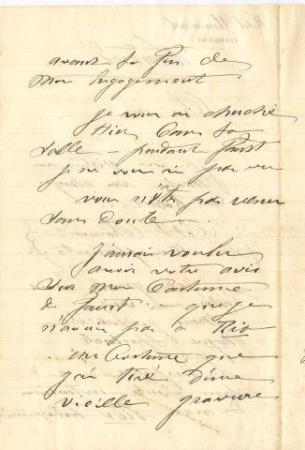 avant la fin de
mon engagement.
Je vous ai cherché
hier dans la
salle - pendant Faust
je ne vous ai pas vu
vous n'êtes pas venu
sans doute.
J'aurais voulu
avoir votre avis
sur mon Costume
de Faust. que je
n'avais pas à Rio
un Costume que
j'ai tiré d'une
vieille gravure